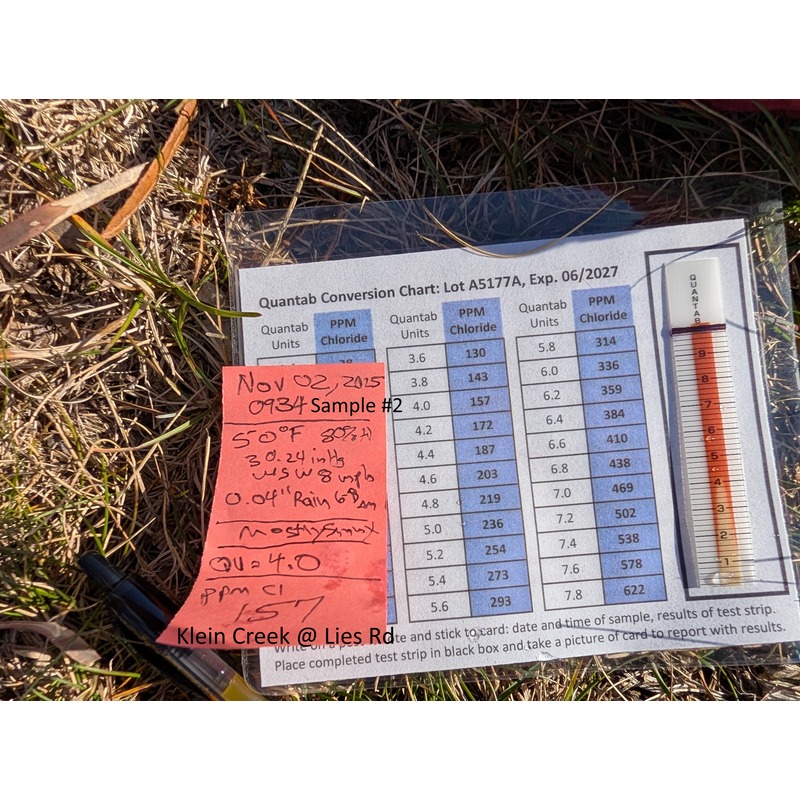 Quantab Conversion Chart: Lot A5177A, Exp. 06/2027
Quantab Units PPM Chloride Quantab Units PPM Chloride Quantab Units PPM Chloride
3.6 130 5.8 314
3.8 143 6.0 336
4.0 157 6.2 359
4.2 172 6.4 384
4.4 187 6.6 410
4.6 203 6.8 438
4.8 219 7.0 469
5.0 236 7.2 502
5.2 254 7.4 538
5.4 273 7.6 578
5.6 293 7.8 622
Nov 02, 2025
0934 Sample #2
50°F 80% H
30.24 inHg
WSW 8 mph
0.04" Rain
Mostly Sunny
QU = 4.0
PPM Cl
157
Klein Creek @ Lies Rd
and stick to card: date and time of sample, results of test strip.
Place completed test strip in black box and take a picture of card to report with results.
QUANTAB
9
8
7
6
5
4
3
2
1